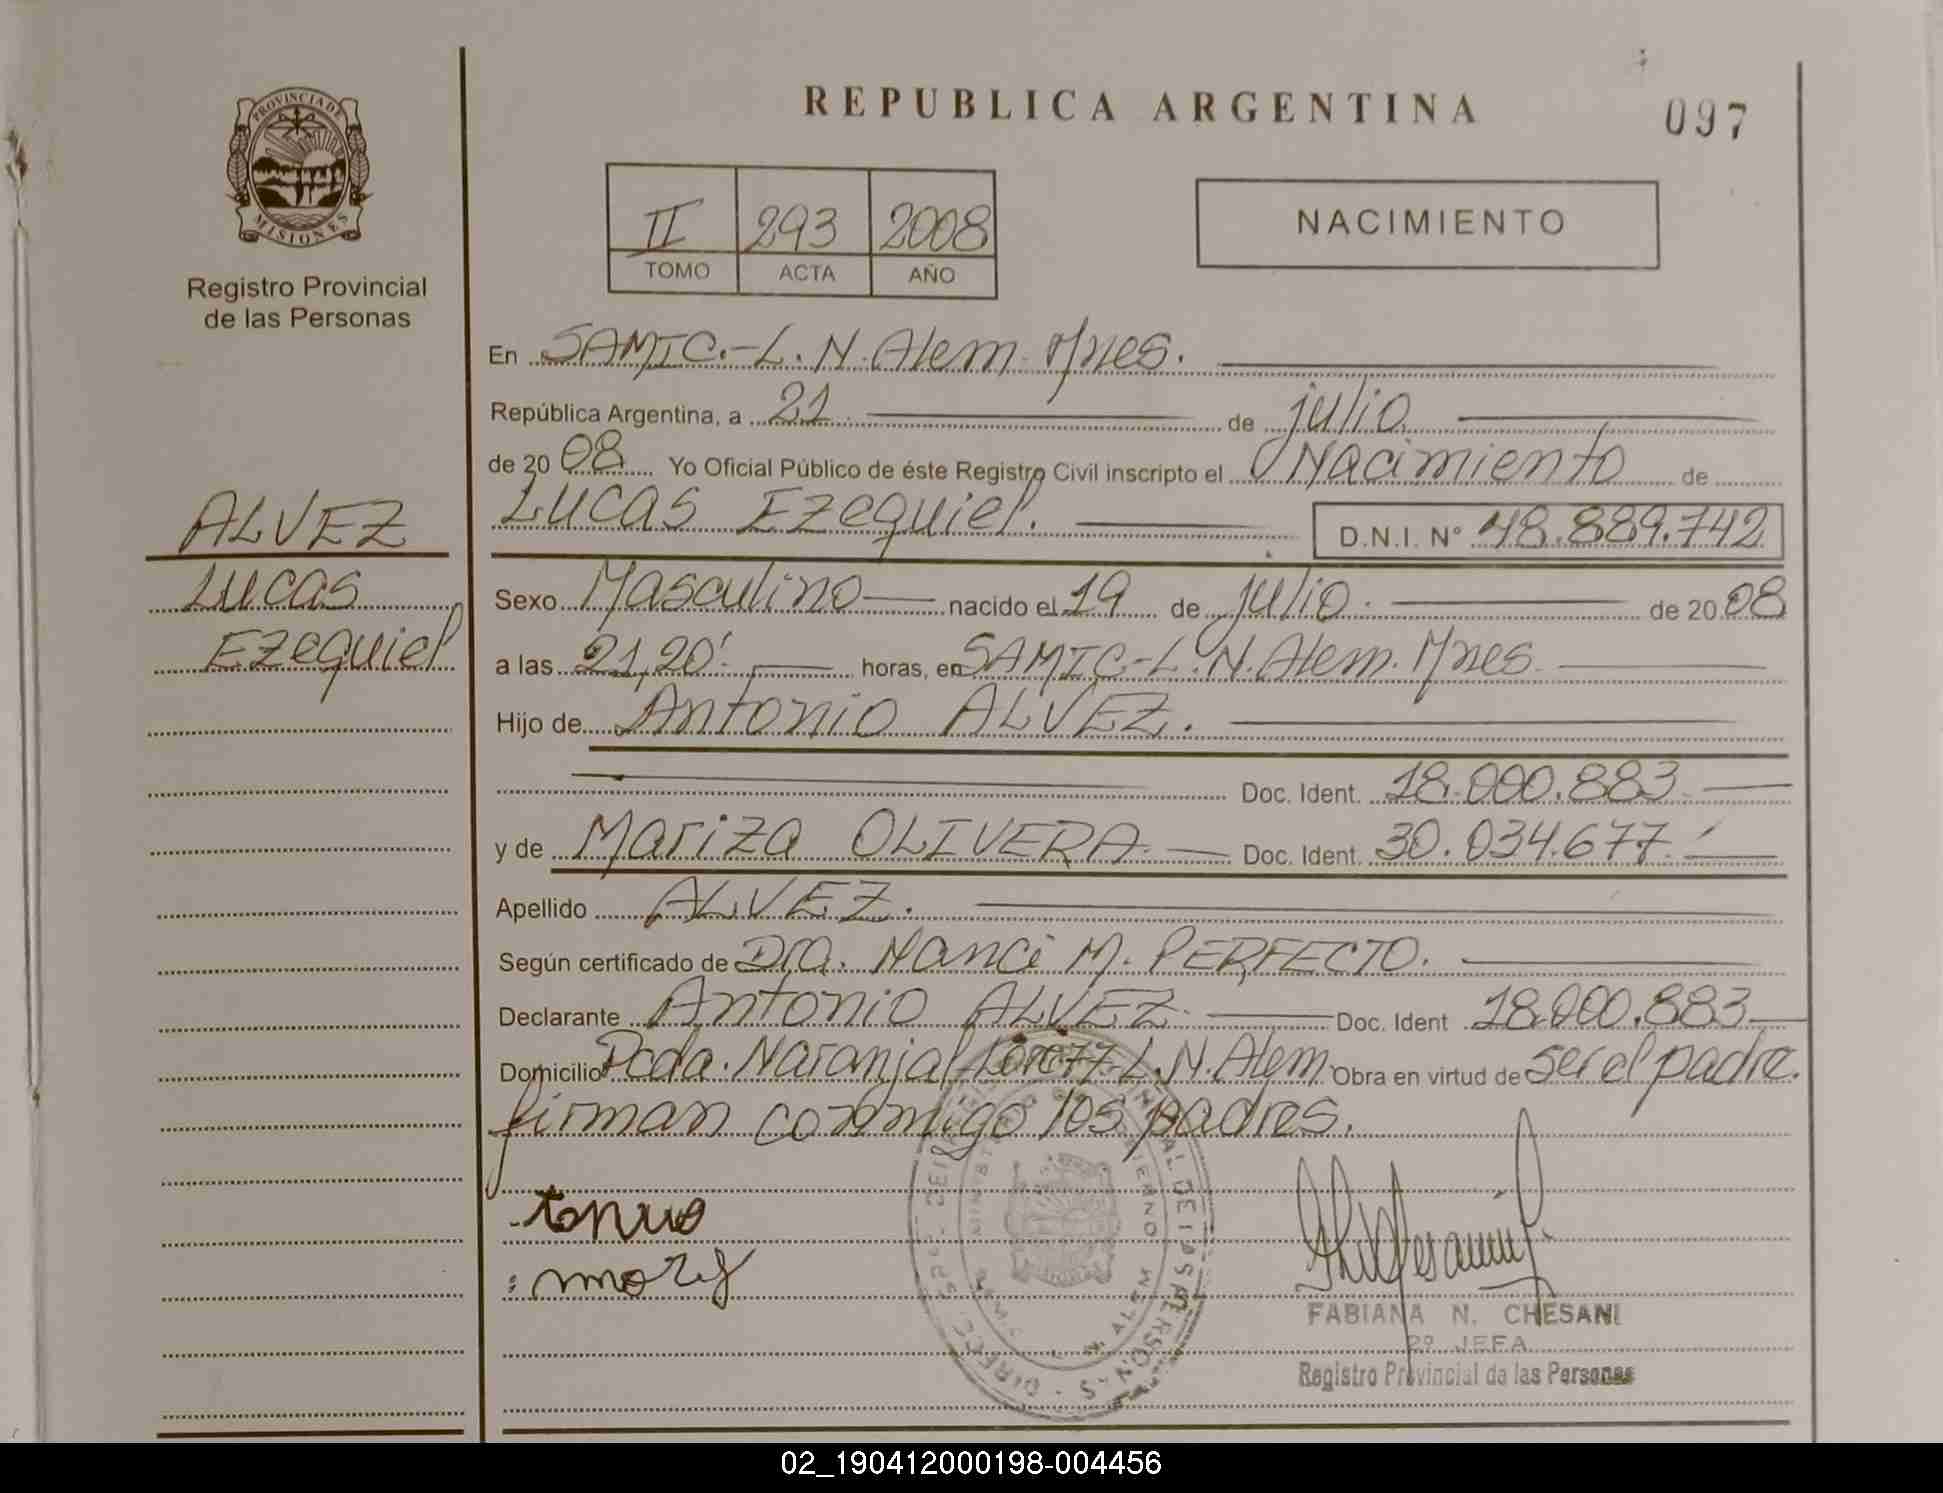 PROVINCIA DE
MISIONES
Registro Provincial
de las Personas
ALVEZ
Lucas
Ezequiel
REPUBLICA ARGENTINA
097
II 293 2008
TOMO ACTA AÑO
NACIMIENTO
En SAMIC.-L.N.Alem. Mnes.
República Argentina, a 21 de julio
de 2008 Yo Oficial Público de éste Registro Civil inscripto el Nacimiento de
Lucas Ezequiel. D.N.I. Nº 48.889.742
Sexo Masculino nacido el 19 de julio. de 2008
a las 21,20'. horas, en SAMIC-L.N.Alem. Mnes.
Hijo de Antonio ALVEZ.
Doc. Ident. 18.000.883
y de Mariza OLIVERA. Doc. Ident. 30.034.677.
Apellido ALVEZ.
Según certificado de Dra. Nanci M. PERFECTO.
Declarante Antonio ALVEZ. Doc. Ident 18.000.883
Domicilio Pcda. Naranjal L.N.Alem. Obra en virtud de ser el padre.
firman conmigo los padres.
FABIANA N. CHESANI
2º JEFA
Registro Provincial de las Personas
02_190412000198-004456